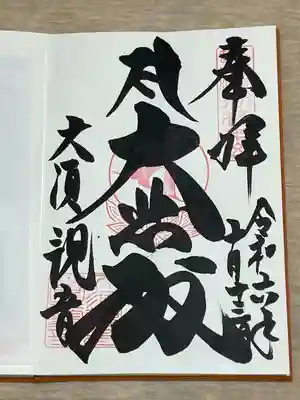 奉拝
令和六年
十月十三日
大悲殿
大須観音